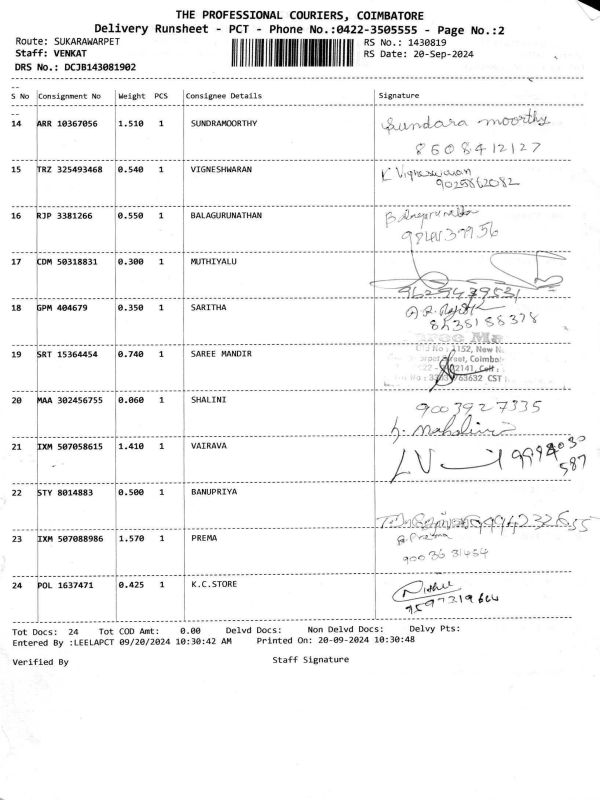 THE PROFESSIONAL COURIERS, COIMBATORE
Delivery Runsheet - PCT - Phone No.:0422-3505555 - Page No.:2
Route: SUKARAWARPET RS No.: 1430819
Staff: VENKAT RS Date: 20-Sep-2024
DRS No.: DCJB143081902
S No Consignment No Weight PCS Consignee Details Signature
14 ARR 10367056 1.510 1 SUNDRAMOORTHY Sundara moorthy
8608412127
15 TRZ 325493468 0.540 1 VIGNESHWARAN K Vigneswaran
9025862082
16 RJP 3381266 0.550 1 BALAGURUNATHAN
17 CDM 50318831 0.300 1 MUTHIYALU
9629439531
18 GPM 404679 0.350 1 SARITHA
8438188378
19 SRT 15364454 0.740 1 SAREE MANDIR
20 MAA 302456755 0.060 1 SHALINI 9003927335
21 IXM 507058615 1.410 1 VAIRAVA
22 STY 8014883 0.500 1 BANUPRIYA
23 IXM 507088986 1.570 1 PREMA
9003631454
24 POL 1637471 0.425 1 K.C.STORE
9597319664
Tot Docs: 24 Tot COD Amt: 0.00 Delvd Docs: Non Delvd Docs: Delvy Pts:
Entered By :LEELAPCT 09/20/2024 10:30:42 AM Printed On: 20-09-2024 10:30:48
Verified By Staff Signature